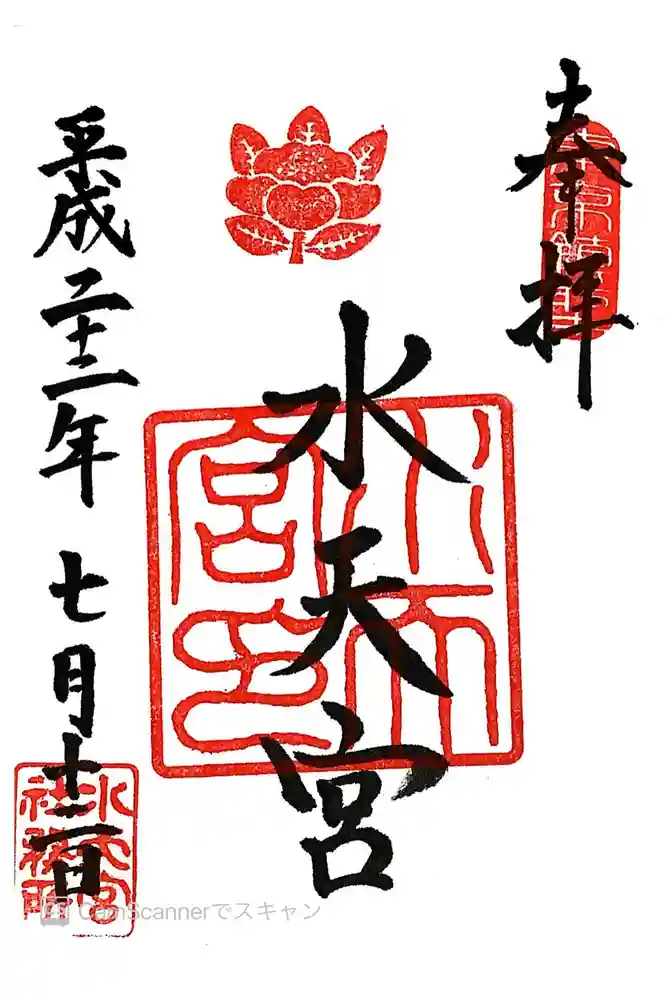 奉拝
水天宮
水天宮印
平成二十二年 七月十二日
水天宮社務所
CamScannerでスキャン